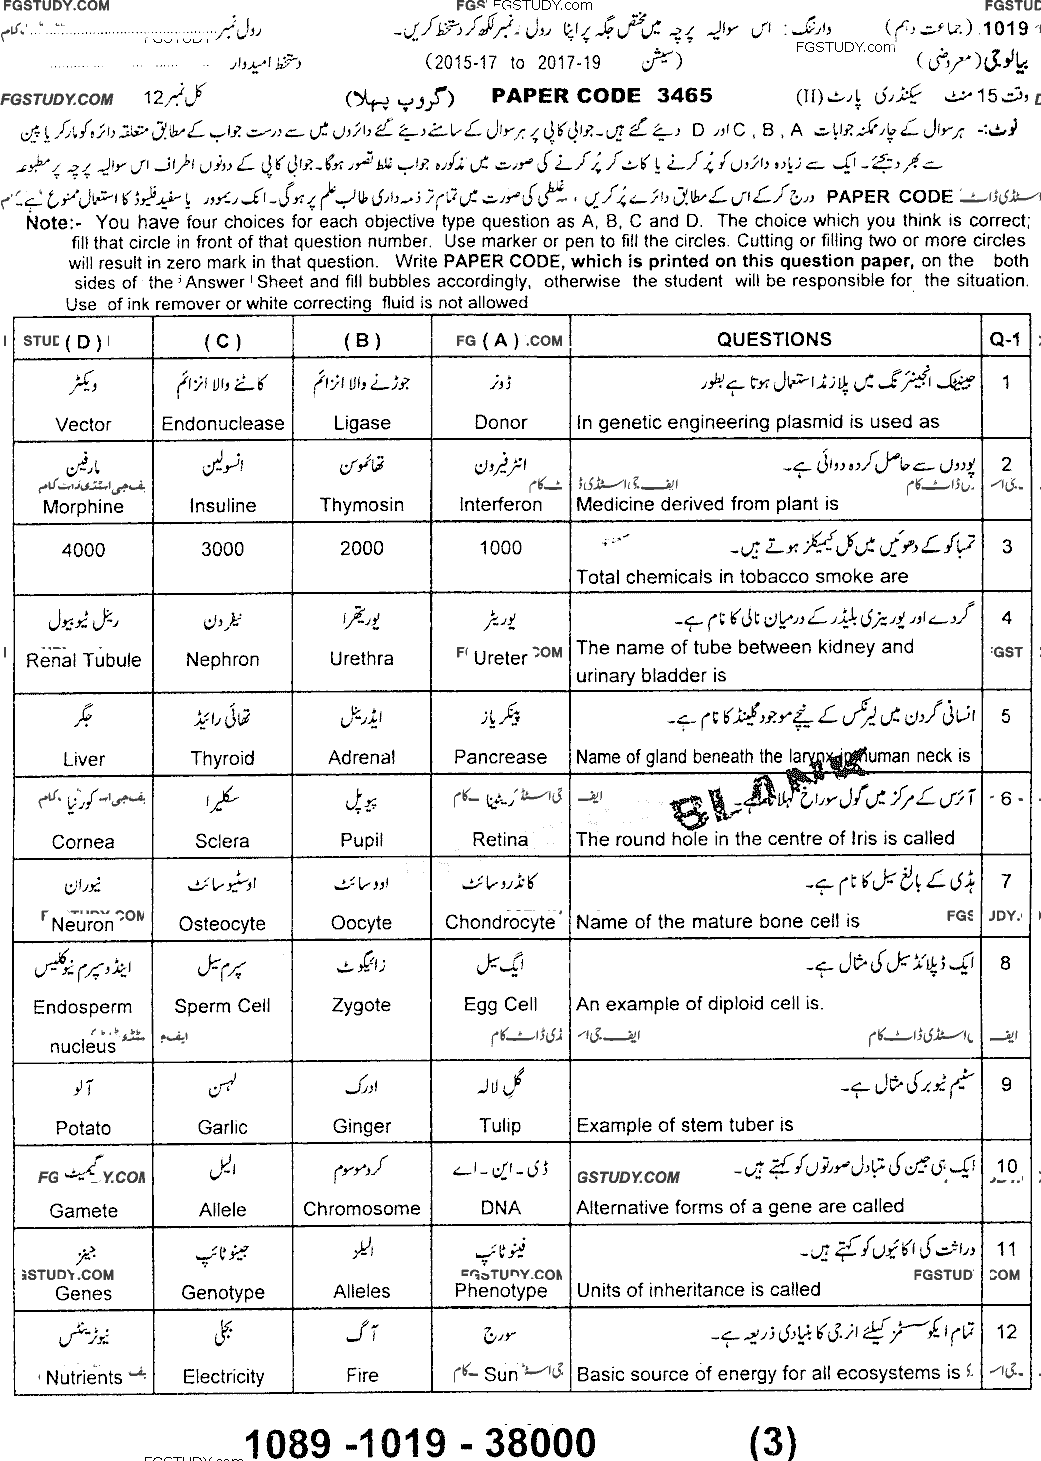 FGSTUDY.COM FGS' FGSTUDY.com FGSTUDY.COM
1019 (جماعت دہم) وارننگ: اس سوالیہ پرچہ میں مختص جگہ پر اپنا رول نمبر لکھ کر دستخط کریں۔ رول نمبر
FGSTUDY.com
بیالوجی (معروضی) (سیشن 2015-17 to 2017-19) دستخط امیدوار
وقت 15 منٹ سیکنڈری پارٹ (II) PAPER CODE 3465 (گروپ پہلا) کل نمبر 12 FGSTUDY.COM
نوٹ:- ہر سوال کے چار ممکنہ جوابات A , B , C اور D دیئے گئے ہیں۔ جوابی کاپی پر ہر سوال کے سامنے دیئے گئے دائروں میں سے درست جواب کے مطابق متعلقہ دائرہ کو مارکر یا پین
سے بھر دیجئے۔ ایک سے زیادہ دائروں کو پُر کرنے یا کاٹ کر پُر کرنے کی صورت میں مذکورہ جواب غلط تصور ہوگا۔ جوابی کاپی کے دونوں اطراف اس سوالیہ پرچہ پر مطبوعہ
PAPER CODE درج کرکے اس کے مطابق دائرے پُر کریں، غلطی کی صورت میں تمام تر ذمہ داری طالب علم پر ہوگی۔ انک ریموور یا سفید فلیوڈ کا استعمال ممنوع ہے۔
Note:- You have four choices for each objective type question as A, B, C and D. The choice which you think is correct;
fill that circle in front of that question number. Use marker or pen to fill the circles. Cutting or filling two or more circles
will result in zero mark in that question. Write PAPER CODE, which is printed on this question paper, on the both
sides of the Answer Sheet and fill bubbles accordingly, otherwise the student will be responsible for the situation.
Use of ink remover or white correcting fluid is not allowed
(D) (C) (B) (A) QUESTIONS Q-1
ویکٹر کاٹنے والا انزائم جوڑنے والا انزائم ڈونر جینیٹک انجینئرنگ میں پلازمڈ استعمال ہوتا ہے بطور 1
Vector Endonuclease Ligase Donor In genetic engineering plasmid is used as
مارفین انسولین تھائموسن انٹرفیرون پودوں سے حاصل کردہ دوائی ہے۔ 2
Morphine Insuline Thymosin Interferon Medicine derived from plant is
4000 3000 2000 1000 تمباکو کے دھوئیں میں کل کیمیکلز ہوتے ہیں۔ 3
Total chemicals in tobacco smoke are
رینل ٹیوبیول نیفرون یوریتھرا یوریٹر گردے اور یورینری بلیڈر کے درمیان نالی کا نام ہے۔ 4
Renal Tubule Nephron Urethra Ureter The name of tube between kidney and
urinary bladder is
جگر تھائی رائیڈ ایڈرینل پینکریاز انسانی گردن میں لیرنکس کے نیچے موجود گلینڈ کا نام ہے۔ 5
Liver Thyroid Adrenal Pancrease Name of gland beneath the larynx in human neck is
کورنیا سکلیرا پیوپل ریٹینا آئرس کے مرکز میں گول سوراخ کہلاتا ہے۔ - 6 -
Cornea Sclera Pupil Retina The round hole in the centre of Iris is called
نیوران اوسٹیوسائٹ اووسائٹ کانڈروسائٹ ہڈی کے بالغ سیل کا نام ہے۔ 7
Neuron Osteocyte Oocyte Chondrocyte Name of the mature bone cell is
اینڈوسپرم نیوکلیس سپرم سیل زائیگوٹ ایگ سیل ایک ڈپلائڈ سیل کی مثال ہے۔ 8
Endosperm Sperm Cell Zygote Egg Cell An example of diploid cell is.
nucleus
آلو لہسن ادرک گلِ لالہ سٹیم ٹیوبر کی مثال ہے۔ 9
Potato Garlic Ginger Tulip Example of stem tuber is
گیمیٹ الیل کروموسوم ڈی-این-اے ایک ہی جین کی متبادل صورتوں کو کہتے ہیں۔ 10
Gamete Allele Chromosome DNA Alternative forms of a gene are called
جینز جینوٹائپ الیلز فینوٹائپ وراثت کی اکائیوں کو کہتے ہیں۔ 11
Genes Genotype Alleles Phenotype Units of inheritance is called
نیوٹرینٹس بجلی آگ سورج تمام ایکوسسٹمز کیلئے انرجی کا بنیادی ذریعہ ہے۔ 12
Nutrients Electricity Fire Sun Basic source of energy for all ecosystems is
1089 -1019 - 38000 (3)
FGSTUDY.com